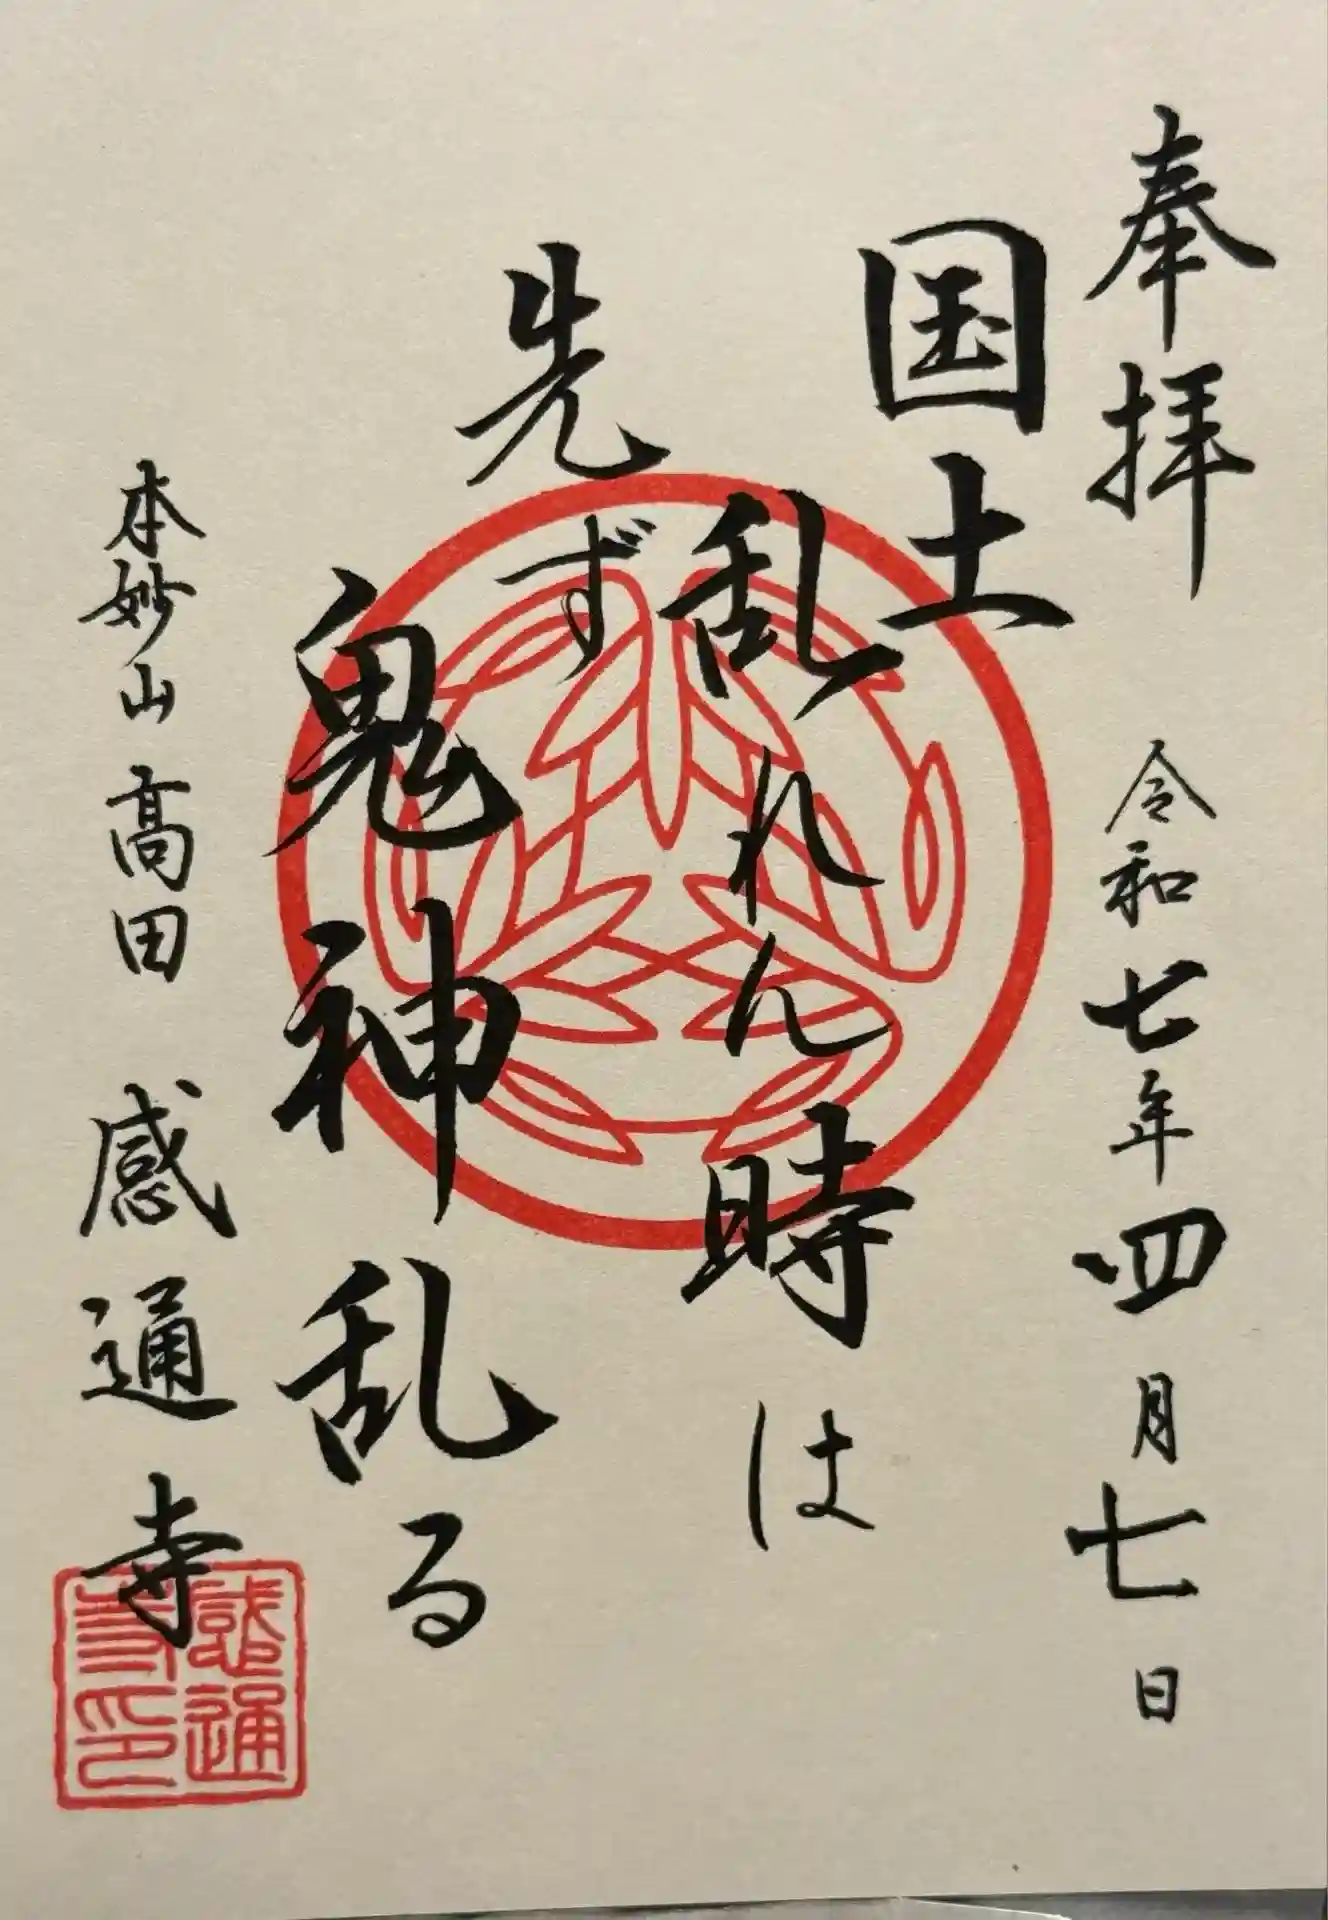 奉拝 令和七年四月七日
国土
乱れん時は
先ず
鬼神乱る
本妙山 高田 感通寺
感通
寺印